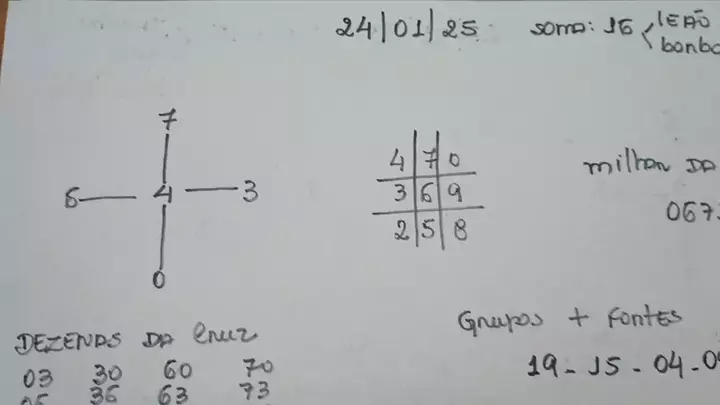 24/01/25 soma: 16 < LEÃO
7
6 4 3
0
4 7 0
3 6 9
2 5 8
milhar DA
067
DEZENAS DA Cruz
03 30 60 70
36 63 73
Grupos + Fontes
19 - 15 - 04 -